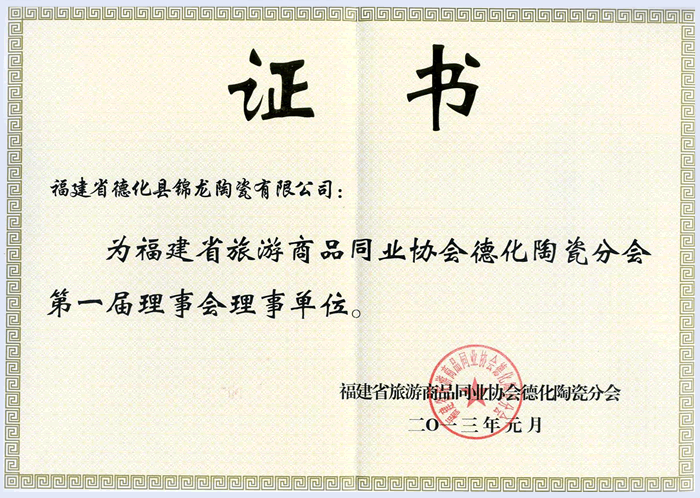 证 书
福建省德化县锦龙陶瓷有限公司：
为福建省旅游商品同业协会德化陶瓷分会
第一届理事会理事单位。
福建省旅游商品同业协会德化陶瓷分会
二〇一三年元月